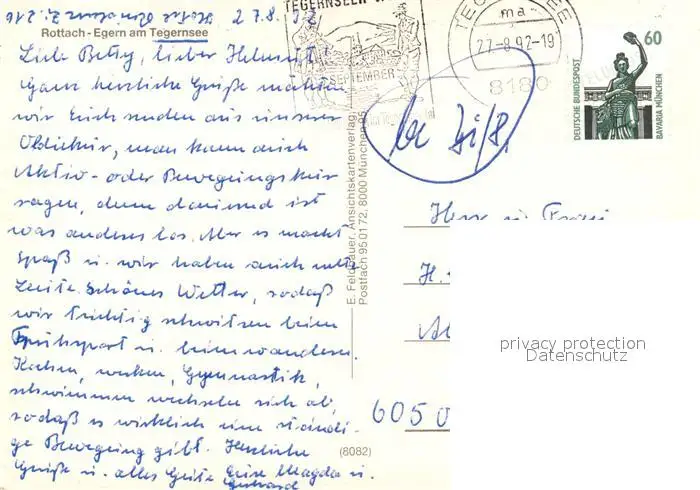 27.8.92
Rottach-Egern am Tegernsee
Liebe Betsy, lieber Helmut!
Ganz herzliche Grüße möchten
wir Euch senden aus unserer
man kann auch
Aktiv- oder Bewegungskur
sagen, denn dauernd ist
was anderes los. Aber es macht
Spaß u. wir haben auch
Leute. Schönes Wetter, sodaß
wir tüchtig schwitzen beim
Frühsport u. beim wandern.
Kochen, werken, Gymnastik,
schwimmen wechseln sich ab,
sodaß es wirklich eine ständi-
ge Bewegung gibt. Herzliche
Grüße u. alles Gute Eure Magda u.
Gerhard
(8082)
E. Feldbauer, Ansichtskartenverlag,
Postfach 950172, 8000 München 95
TEGERNSEER
SEPTEMBER
TEGERNSEE
ma
27-8.92-19
8180
60
DEUTSCHE BUNDESPOST
BAVARIA MÜNCHEN
Herr u. Frau
H.
605 0
privacy protection
Datenschutz